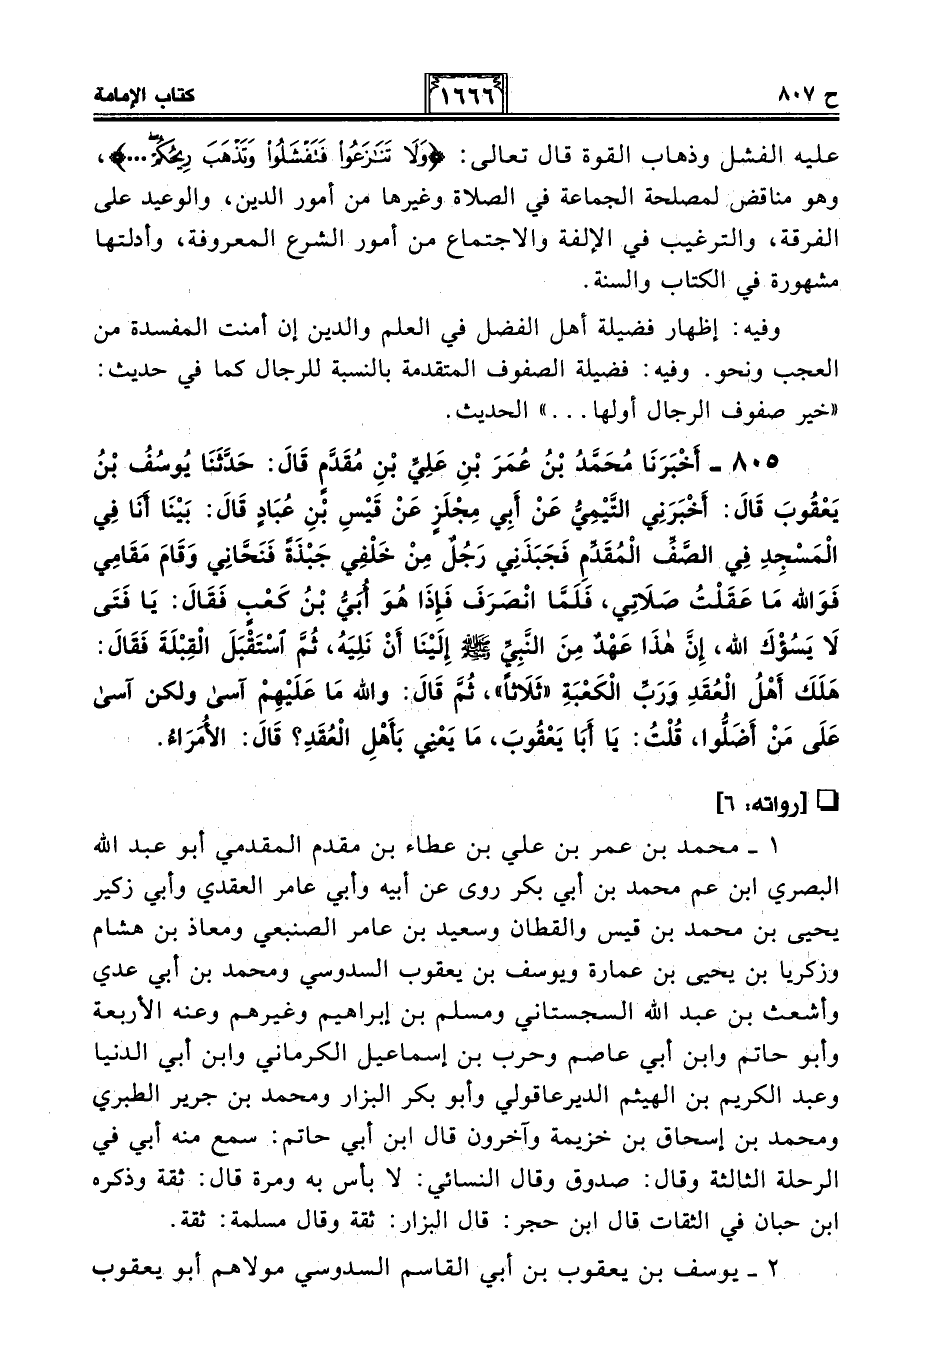 ح ٨٠٧ ١٦٦٦ كتاب الإمامة
عليه الفشل وذهاب القوة قال تعالى: ﴿وَلَا تَنَٰزَعُوا۟ فَتَفْشَلُوا۟ وَتَذْهَبَ رِيحُكُمْ ...﴾،
وهو مناقض لمصلحة الجماعة في الصلاة وغيرها من أمور الدين، والوعيد على
الفرقة، والترغيب في الإلفة والاجتماع من أمور الشرع المعروفة، وأدلتها
مشهورة في الكتاب والسنة.
وفيه: إظهار فضيلة أهل الفضل في العلم والدين إن أمنت المفسدة من
العجب ونحو. وفيه: فضيلة الصفوف المتقدمة بالنسبة للرجال كما في حديث:
«خير صفوف الرجال أولها...» الحديث.
٨٠٥ ـ أَخْبَرَنَا مُحَمَّدُ بْنُ عُمَرَ بْنِ عَلِيِّ بْنِ مُقَدَّمٍ قَالَ: حَدَّثَنَا يُوسُفُ بْنُ
يَعْقُوبَ قَالَ: أَخْبَرَنِي التَّيْمِيُّ عَنْ أَبِي مِجْلَزٍ عَنْ قَيْسِ بْنِ عُبَادٍ قَالَ: بَيْنَا أَنَا فِي
الْمَسْجِدِ فِي الصَّفِّ الْمُقَدَّمِ فَجَبَذَنِي رَجُلٌ مِنْ خَلْفِي جَبْذَةً فَنَحَّانِي وَقَامَ مَقَامِي
فَوَالله مَا عَقَلْتُ صَلَاتِي، فَلَمَّا انْصَرَفَ فَإِذَا هُوَ أُبَيُّ بْنُ كَعْبٍ فَقَالَ: يَا فَتَى
لَا يَسُؤْكَ الله، إِنَّ هٰذَا عَهْدٌ مِنَ النَّبِيِّ ﷺ إِلَيْنَا أَنْ نَلِيَهُ، ثُمَّ ٱسْتَقْبَلَ الْقِبْلَةَ فَقَالَ:
هَلَكَ أَهْلُ الْعُقَدِ وَرَبِّ الْكَعْبَةِ «ثَلَاثاً»، ثُمَّ قَالَ: والله مَا عَلَيْهِمْ آسىٰ ولكن آسىٰ
عَلَى مَنْ أَضَلُّوا، قُلْتُ: يَا أَبَا يَعْقُوبَ، مَا يَعْنِي بِأَهْلِ الْعُقَدِ؟ قَالَ: الأُمَرَاءُ.
❑ [رواته: ٦]
١ ـ محمد بن عمر بن علي بن عطاء بن مقدم المقدمي أبو عبد الله
البصري ابن عم محمد بن أبي بكر روى عن أبيه وأبي عامر العقدي وأبي زكير
يحيى بن محمد بن قيس والقطان وسعيد بن عامر الصنبعي ومعاذ بن هشام
وزكريا بن يحيى بن عمارة ويوسف بن يعقوب السدوسي ومحمد بن أبي عدي
وأشعث بن عبد الله السجستاني ومسلم بن إبراهيم وغيرهم وعنه الأربعة
وأبو حاتم وابن أبي عاصم وحرب بن إسماعيل الكرماني وابن أبي الدنيا
وعبد الكريم بن الهيثم الديرعاقولي وأبو بكر البزار ومحمد بن جرير الطبري
ومحمد بن إسحاق بن خزيمة وآخرون قال ابن أبي حاتم: سمع منه أبي في
الرحلة الثالثة وقال: صدوق وقال النسائي: لا بأس به ومرة قال: ثقة وذكره
ابن حبان في الثقات قال ابن حجر: قال البزار: ثقة وقال مسلمة: ثقة.
٢ ـ يوسف بن يعقوب بن أبي القاسم السدوسي مولاهم أبو يعقوب